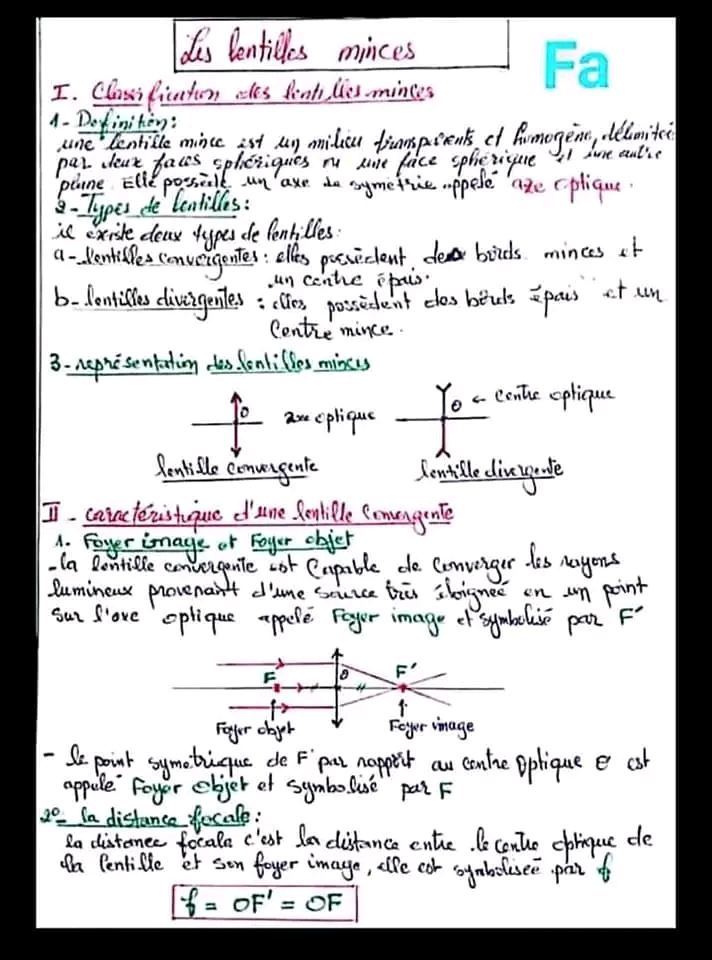 Les lentilles minces
Fa
I. Classification des lentilles minces
1- Definition:
une lentille mince est un milieu transparents et homogène, délimitée
par deux faces sphériques ou une face sphérique et une autre
plane. Elle possède un axe de symétrie appelé axe optique.
2- Types de lentilles:
il existe deux types de lentilles:
a- lentilles convergentes: elles possèdent des bords minces et
un centre épais.
b- lentilles divergentes : elles possèdent des bords épais et un
Centre mince.
3- représentation des lentilles minces
O axe optique O ← centre optique
lentille convergente lentille divergente
II - caractéristique d'une lentille convergente
1. Foyer image et Foyer objet
- la lentille convergente est Capable de converger les rayons
lumineux provenant d'une source très éloigneé en un point
sur l'axe optique appelé Foyer image et symbolisé par F'
F O F'
Foyer objet Foyer image
- le point symetrique de F' par rapport au centre optique O est
appelé Foyer objet et symbolisé par F
2°- la distance focale:
la distance focale c'est la distance entre le centre optique de
la lentille et son foyer image, elle est symboliseé par f
f = OF' = OF